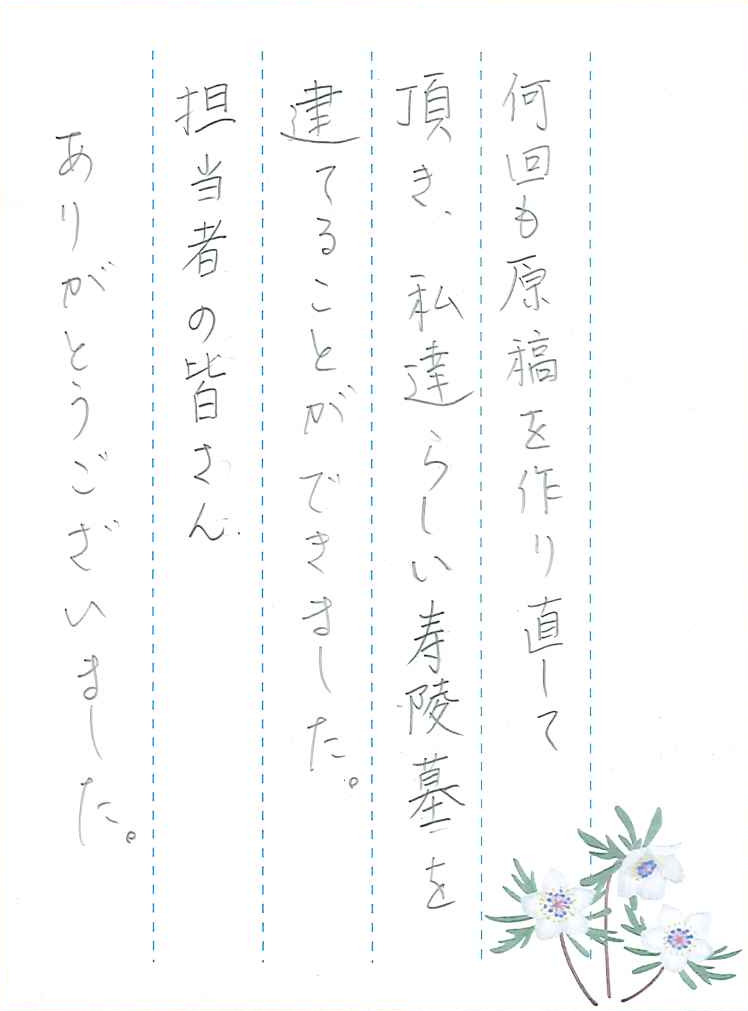 何回も原稿を作り直して
頂き、私達らしい寿陵墓を
建てることができました。
担当者の皆さん
ありがとうございました。